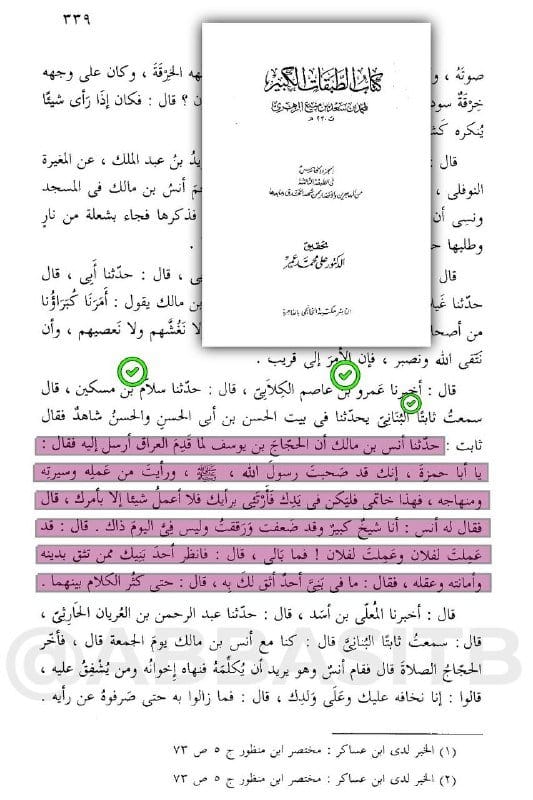 ٣٣٩
صوتَهُ ، و
ه الخِرْقَةَ ، وكان على وجهه
خِرْقَةٌ سود
ن ؟ قال : فكان إذَا رَأى شيئًا
يُنكره كَش
كتاب الطبقات الكبير
لمحمد بن سعد بن منيع الزهري
ت ٢٣٠ هـ
الجزء الخامس
في الطبقة الثالثة
تحقيق
الدكتور علي محمد عمر
الناشر مكتبة الخانجي بالقاهرة
قال :
يدُ بنُ عبد الملك ، عن المغيرة
النوفلى ،
أنسُ بن مالك فى المسجد
ونسِى أن
فذكرها فجاء بشعلة من نارٍ
وطلبها ح
قال
ى ، قال : حدّثنا أَبِى ، قال
حدّثنا غَيلا
بن مالك يقول : أَمَرَنَا كُبَرَاؤُنا
من أصحا
لا نَغُشَّهم ولا نَعصيهم ، وأن
نَتّقى الله ونصبر ، فإن الأمرَ إلى قريب .
قال : أخبرنا عَمرو بن عاصم الكِلَابِىّ ، قال : حدّثنا سلّام بن مسكين ، قال
سمعتُ ثابتًا البُنَانِىّ يحدّثنا فى بيت الحسن بن أبى الحسن والحسنُ شاهدٌ فقال
ثابت : حدّثنا أنس بن مالك أن الحجّاجَ بن يوسف لما قَدِمَ العراق أرسل إليه فقال :
يا أبا حمزةَ ، إنك قد صَحبتَ رسولَ الله ، ﷺ ، ورأيتَ من عَمله وسيرتِه
ومنهاجه ، فهذا خاتمى فليَكن فى يَدِك فَأَرْتَئِى برأيك فلا أعملُ شيئا إلا بأمرك ، قال
فقال له أنس : أنا شيخٌ كبيرٌ وقد ضَعفت ورَققتُ وليس فِىّ اليومَ ذاك . قال : قد
عَمِلتَ لفلان وعَمِلتَ لفلان ! فما بَالى ، قال : فانظر أحدَ بَنِيك ممن تثق بدينه
وأمانته وعقله ، فقال : ما فى بَنِىّ أحدٌ أثق لكَ بِه ، قال : حتى كثُر الكلام بينهما .
قال : أخبرنا المُعلّى بن أسَد ، قال : حدّثنا عبد الرحمن بن العُريان الحَارِثِىّ ،
قال : سمعتُ ثابتًا البُنانِىّ قال : كنا مع أنس بن مالك يومَ الجمعة قال ، فأخّر
الحجّاجُ الصلاةَ قال فقام أنسٌ وهو يريد أن يُكلّمَهُ فنهاه إخوانُه ومن يُشْفِقُ عليه ،
قالوا : إنا نخافه عليك وعَلَى وَلدِك ، قال : فما زالوا به حتى صَرفوهُ عن رأيه .
(١) الخبر لدى ابن عساكر : مختصر ابن منظور ج ٥ ص ٧٣
(٢) الخبر لدى ابن عساكر : مختصر ابن منظور ج ٥ ص ٧٣